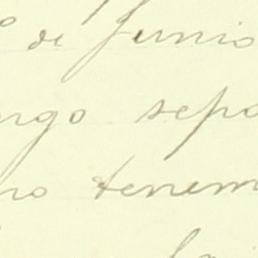 de Junio
ngo sepa
no tenem